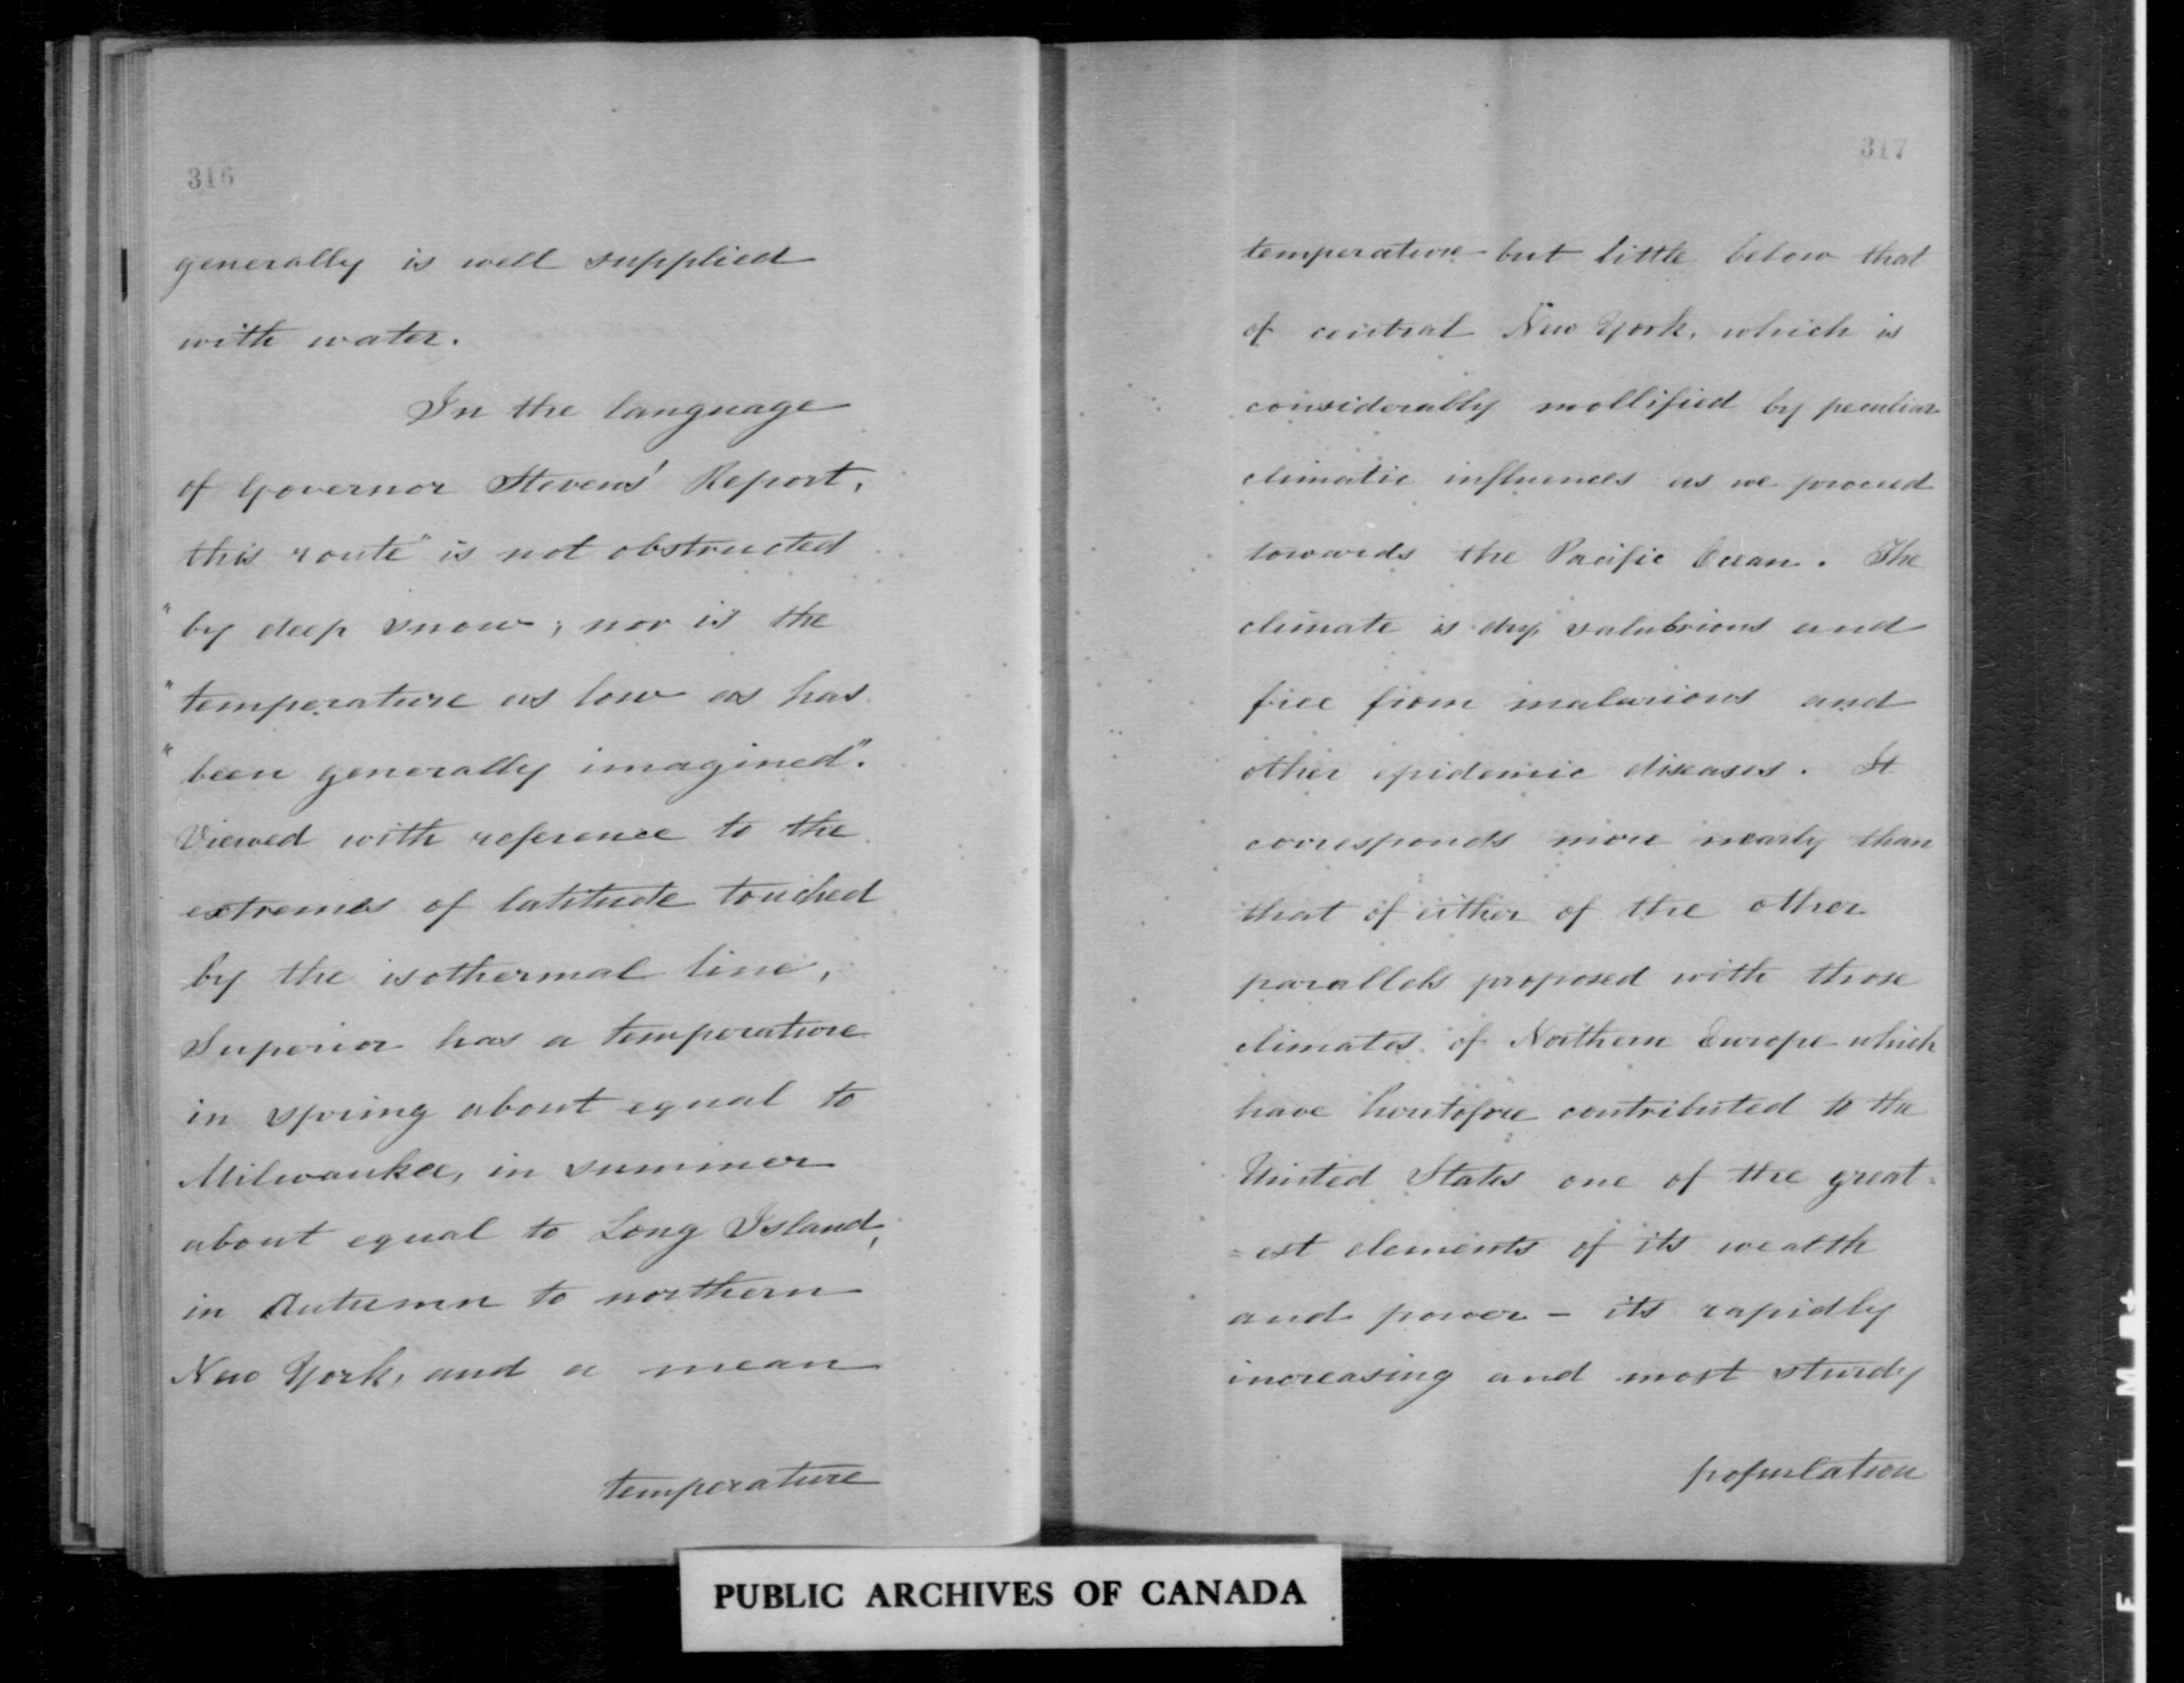 316
generally is well supplied
with water.
In the language
of Governor Stevens' Report,
this route "is not obstructed
"by deep snow; nor is the
"temperature as low as has
"been generally imagined".
Viewed with reference to the
extremes of latitude touched
by the isothermal line,
Superior has a temperature
in spring about equal to
Milwaukee, in summer
about equal to Long Island,
in Autumn to northern
New York, and a mean
temperature
317
temperature but little below that
of central New York, which is
considerably mollified by peculiar
climatic influences as we proceed
towards the Pacific Ocean. The
climate is dry, salubrious and
free from malarious and
other epidemic diseases. It
corresponds more nearly than
that of either of the other
parallels proposed with those
climates of Northern Europe which
have heretofore contributed to the
United States one of the great=
=est elements of its wealth
and power - its rapidly
increasing and most sturdy
population
PUBLIC ARCHIVES OF CANADA